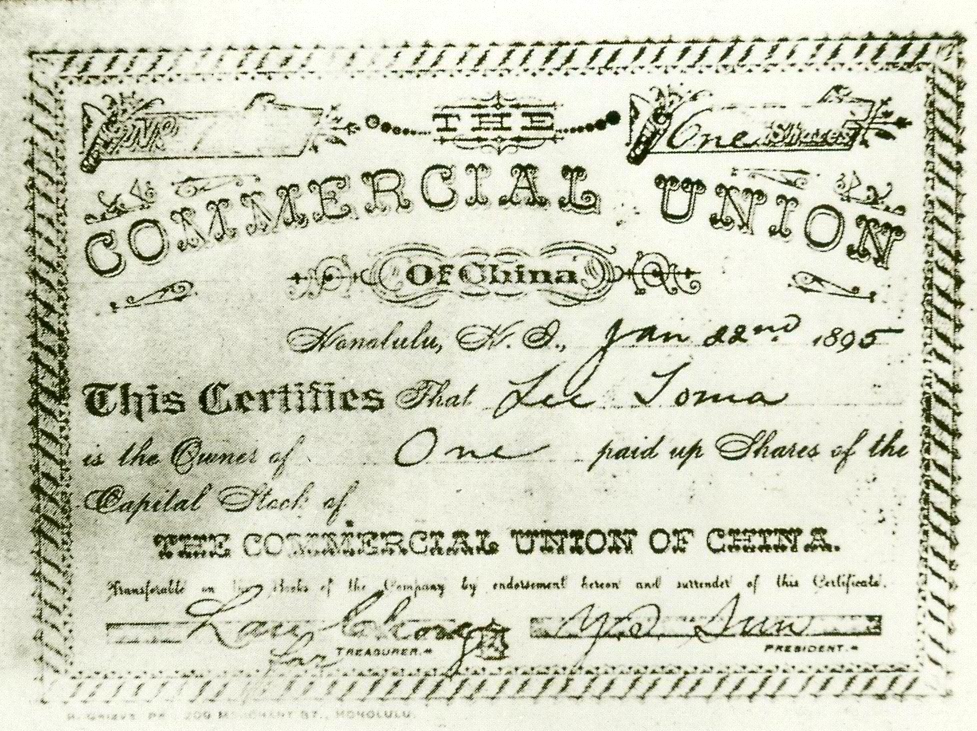 THE
One Shares
COMMERCIAL UNION
Of China
Honolulu, H. I., Jan 22nd 1895
This Certifies That Lee Toma
is the Owner of One paid up Shares of the
Capital Stock of
THE COMMERCIAL UNION OF CHINA.
Transferable on the Books of the Company by endorsement hereon and surrender of this Certificate.
Lau Chong Y.S. Sun
for TREASURER. PRESIDENT.
209 MERCHANT ST., HONOLULU.